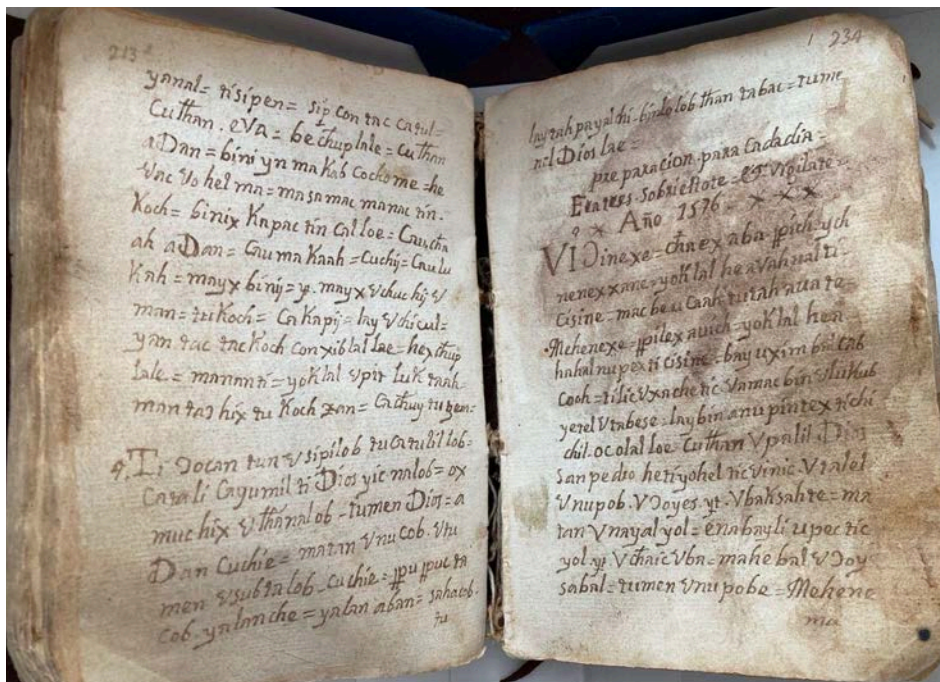 213
yanal = ti sipen = sip con tac catul =
Cuthan. eVa = be chup lale = cu than
aDan = bini yn ma kab cochome = he
vac vo hel ma = masamac manac tin.
Koch = binix Kapac tin Cal loe = Cau, cha
ah aDan = Cau ma Kaah = Cuchij = Caulu
Kah = mayx binij = yx. mayx Vchuchij V
man = tu Koch = Ca Kapij = lay V chi cul =
yan tac tac Koch con xiblal lae = hex chup
lale = manan ti = yoK lal V pit luK taah
man ta hix tu Koch zan = Ca thuy tu zem =
Ti Ɔocan tun V sipilob tu catulil lob =
Catali Cayumil ti Dios yic nalob = ox
muc hix V thanalob - tumen Dios = a
Dan Cuchie = matan V nu cob. V tu
men V subtalob - cuchie = ppu ppuc ta
cob - yalanche = yalan aban = sahacob.
tu
1 234
lay tah payalchi - bin Ɔolob than tabac = tume
nel Dios lae =
pre paracion para Cadadia =
Fratres. Sobriestote = et Vigilate =
Año 1576 = x x x
VI Ɔinexe = chaex aba ppich ych
nenex xane = yoK lal he avahual ti =
Cisine = mac be u Caah = tu tah aua te =
Mehenexe = ppilex auich = yoK lal hea
hahal nupex ti cisine = bay u xim bal cab
Cooh = tilic V xache tic Vamac bin V lukub
yetel V tabese = lay bin anu pintex tichi
chil. ocolal loe = Cuthan V palil. Dios
San pedro heti yohel tic Vinic. V talel
V nupob. V Ɔoyes. yt. V baksahte = ma
tan V nayal yol = ena bayli u pec tic
yol. yx V chaic Vba = mahe bal V Ɔoy
sabal = tumen V nu pobe = Mehene
ma